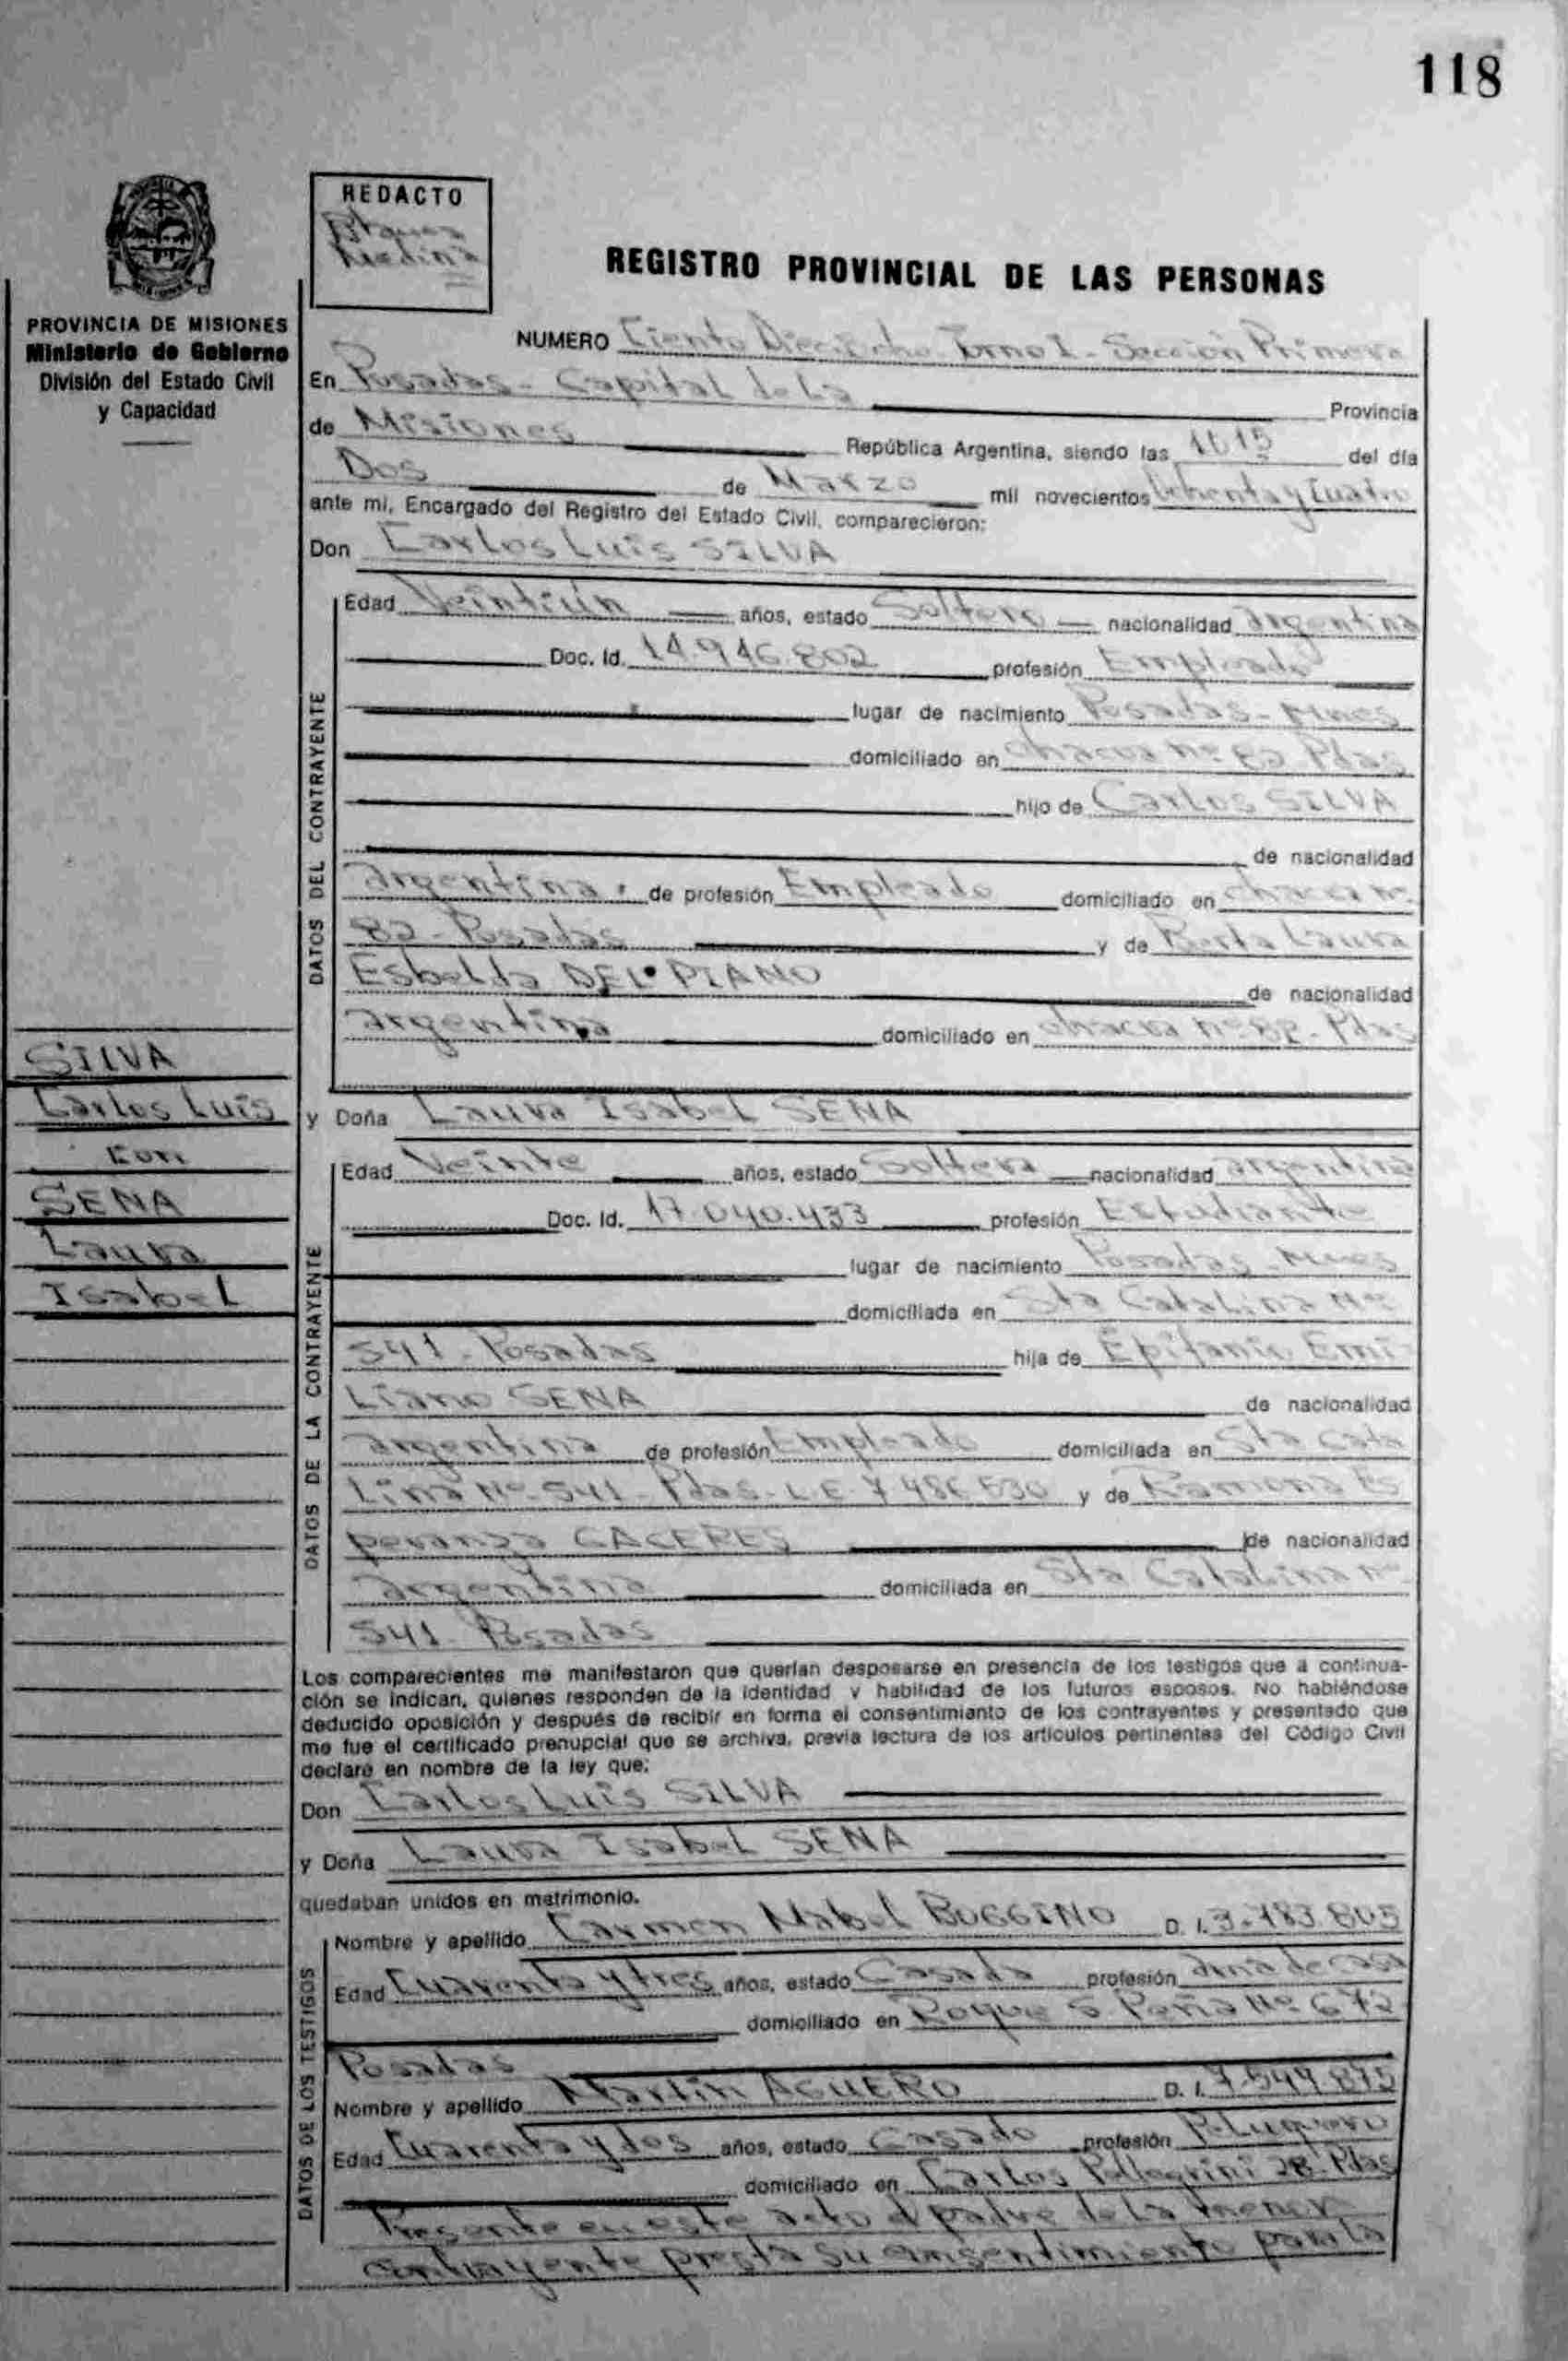 118
REDACTO
Medina
PROVINCIA DE MISIONES
Ministerio de Gobierno
División del Estado Civil
y Capacidad
REGISTRO PROVINCIAL DE LAS PERSONAS
NUMERO Ciento Dieciocho Tomo I - Sección Primera
En Posadas - Capital de la Provincia
de Misiones República Argentina, siendo las 1015 del día
Dos de Marzo mil novecientos Ochenta y Cuatro
ante mí, Encargado del Registro del Estado Civil, comparecieron:
Don Carlos Luis SILVA
DATOS DEL CONTRAYENTE
Edad Veintiún años, estado Soltero nacionalidad argentina
Doc. Id. 14.946.802 profesión Empleado
lugar de nacimiento Posadas - Mnes
domiciliado en chacra Nº 82 Pdas
hijo de Carlos SILVA
de nacionalidad
argentina de profesión Empleado domiciliado en chacra Nº
82 - Posadas y de Berta Laura
DEL PIANO de nacionalidad
argentina domiciliado en chacra nº 82 - Pdas
SILVA
Carlos Luis
con
SENA
Laura
Isabel
y Doña Laura Isabel SENA
DATOS DE LA CONTRAYENTE
Edad Veinte años, estado Soltera nacionalidad argentina
Doc. Id. 17.040.433 profesión Estudiante
lugar de nacimiento Posadas - Mnes
domiciliada en Sta Catalina Nº
541 - Posadas hija de Epifanio Emi
liano SENA de nacionalidad
argentina de profesión Empleado domiciliada en Sta Cata
lina Nº 541 - Pdas - L.E. y de Ramona Es
peranza CACERES de nacionalidad
argentina domiciliada en Sta Catalina nº
541 - Posadas
Los comparecientes me manifestaron que querían desposarse en presencia de los testigos que a continua-
ción se indican, quienes responden de la identidad y habilidad de los futuros esposos. No habiéndose
deducido oposición y después de recibir en forma el consentimiento de los contrayentes y presentado que
me fue el certificado prenupcial que se archiva, previa lectura de los artículos pertinentes del Código Civil
declaré en nombre de la ley que:
Don Carlos Luis SILVA
y Doña Laura Isabel SENA
quedaban unidos en matrimonio.
DATOS DE LOS TESTIGOS
Nombre y apellido Carmen Mabel BOGGINO D. I. 3.783.805
Edad Cuarenta y tres años, estado Casada profesión ama de casa
domiciliado en Roque S. Peña Nº 672
Posadas
Nombre y apellido Martín AGUERO D. I. 7.549.875
Edad Cuarenta y dos años, estado Casado profesión Peluquero
domiciliado en Carlos Pellegrini 28 - Pdas
Presente en este acto el padre de la menor
contrayente presta su consentimiento para la